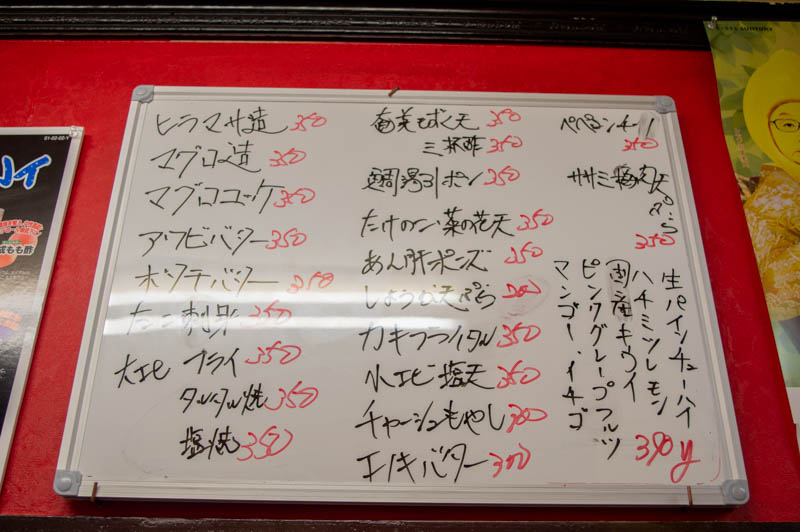 ヒラマサ造 350
マグロ造 350
マグロユッケ 350
アワビバター 350
ホタテバター 350
たこ刺身 350
大エビ フライ 350
タルタル焼 350
塩焼 350
奄美もずく天 350
三杯酢 350
湯引ポン 350
たけのこ・菜の花天 350
あん肝ポンズ 350
しょうが天ぷら 300
カキフライタル 350
小エビ塩天 350
チャーシュもやし 300
エノキバター 300
350
ササミ梅肉天ぷら
350
生パインチューハイ
ハチミツレモン
国産キウイ
ピンクグレープフルツ
マンゴー・イチゴ
390y
SUNTORY